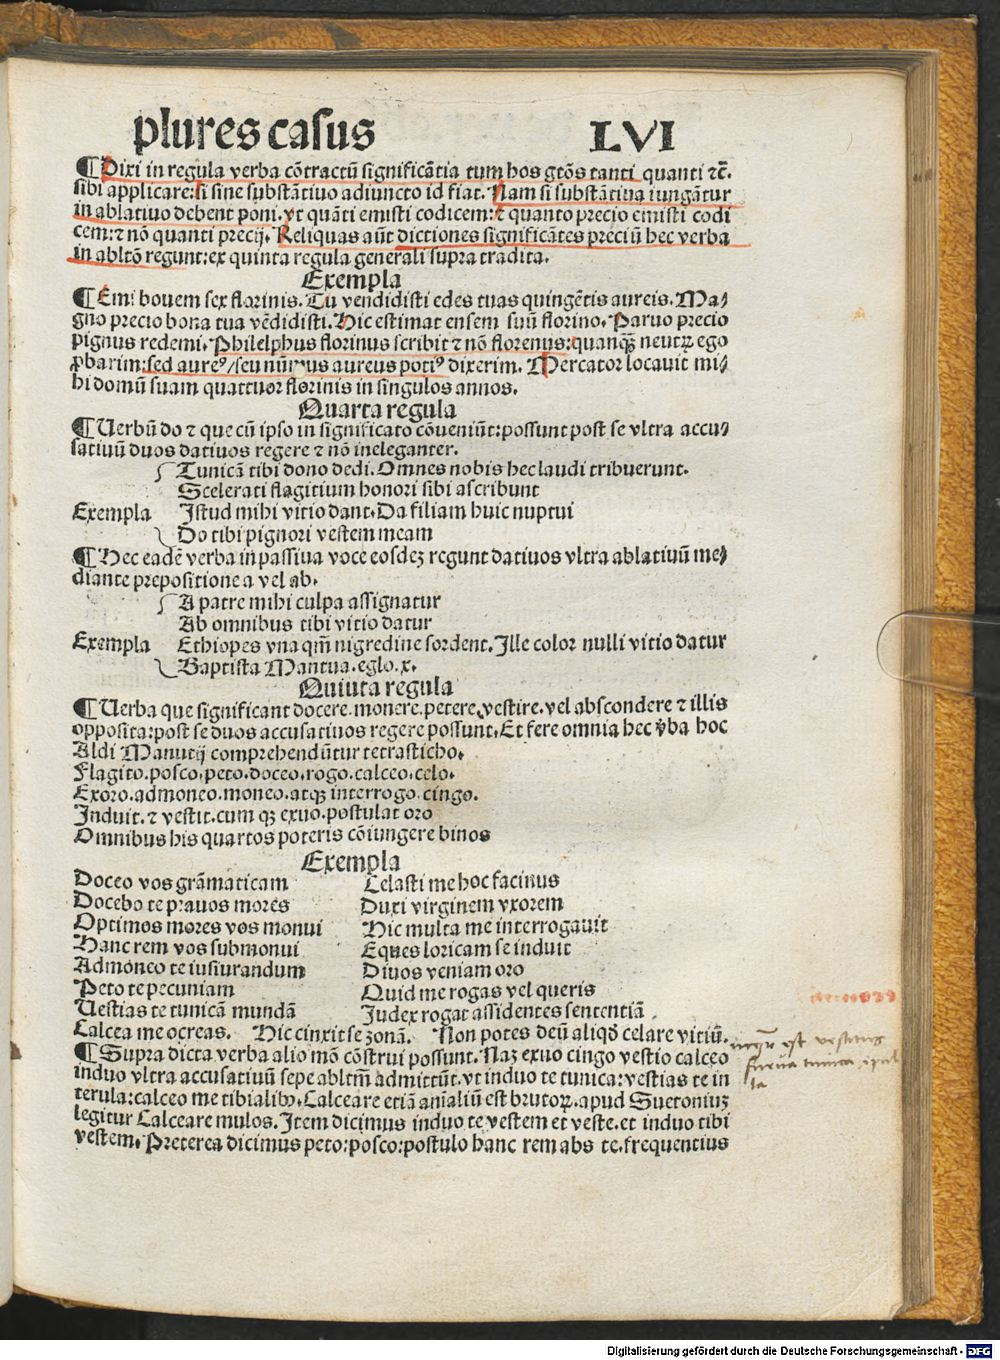 plures casus LVI
¶ Dixi in regula verba cōtractū significātia tum hos gtōs tanti quanti ⁊c̄.
sibi applicare: si sine substātiuo adiuncto id fiat. Nam si substātiua iungātur
in ablatiuo debent poni. vt quāti emisti codicem: ⁊ quanto precio emisti codi
cem: ⁊ nō quanti precij. Reliquas aūt dictiones significātes preciū hec verba
in abltō regunt: ex quinta regula generali supra tradita.
Exempla
¶ Emi bouem sex florinis. Tu vendidisti edes tuas quingētis aureis. Ma⸗
gno precio bona tua vēdidisti. Hic estimat ensem suū florino. Paruo precio
pignus redemi. Philelphus florinus scribit ⁊ nō florenus: quanqꝫ neutꝝ ego
ꝓbarim: sed aureꝰ/ seu nūmus aureus potiꝰ dixerim. Mercator locauit mi⸗
hi domū suam quattuor florinis in singulos annos.
Quarta regula
¶ Uerbū do ⁊ que cū ipso in significato cōueniūt: possunt post se vltra accu⸗
satiuū duos datiuos regere ⁊ nō ineleganter.
Tunicā tibi dono dedi. Omnes nobis hec laudi tribuerunt.
Scelerati flagitium honori sibi ascribunt
Exempla Istud mihi vitio dant. Da filiam huic nuptui
Do tibi pignori vestem meam
¶ Hec eadē verba in passiua voce eosdeꝫ regunt datiuos vltra ablatiuū me⸗
diante prepositione a vel ab.
A patre mihi culpa assignatur
Ab omnibus tibi vitio datur
Exempla Ethiopes vna qm̄ nigredine sordent. Ille color nulli vitio datur
Baptista Mantua. eglo. x.
Quiuta regula
¶ Uerba que significant docere. monere. petere. vestire. vel abscondere ⁊ illis
opposita: post se duos accusatiuos regere possunt. Et fere omnia hec v̄ba hoc
Aldi Manutij comprehendūtur tetrasticho.
Flagito. posco. peto. doceo. rogo. calceo. celo.
Exoro. admoneo. moneo. atqꝫ interrogo. cingo.
Induit. ⁊ vestit. cum qꝫ exuo. postulat oro
Omnibus his quartos poteris cōiungere binos
Exempla
Doceo vos grāmaticam Celasti me hoc facinus
Docebo te prauos mores Duxi virginem vxorem
Optimos mores vos monui Hic multa me interrogauit
Hanc rem vos submonui Eques loricam se induit
Admoneo te iusiurandum Diuos veniam oro
Peto te pecuniam Quid me rogas vel queris
Uestias te tunicā mundā Judex rogat assidentes sententiā
Calcea me ocreas. Hic cinxit se zonā. Non potes deū aliqd̄ celare vitiū.
¶ Supra dicta verba alio mō cōstrui possunt. Naꝫ exuo cingo vestio calceo
induo vltra accusatiuū sepe abltm̄ admittūt. vt induo te tunica: vestias te in
terula: calceo me tibialibꝰ. Calceare etiā aīaliū est brutoꝝ. apud Suetoniuꝫ
legitur Calceare mulos. Item dicimus induo te vestem et veste. et induo tibi
vestem. Preterea dicimus peto: posco: postulo hanc rem abs te. frequentius
est
tunica
Digitalisierung gefördert durch die Deutsche Forschungsgemeinschaft - DFG